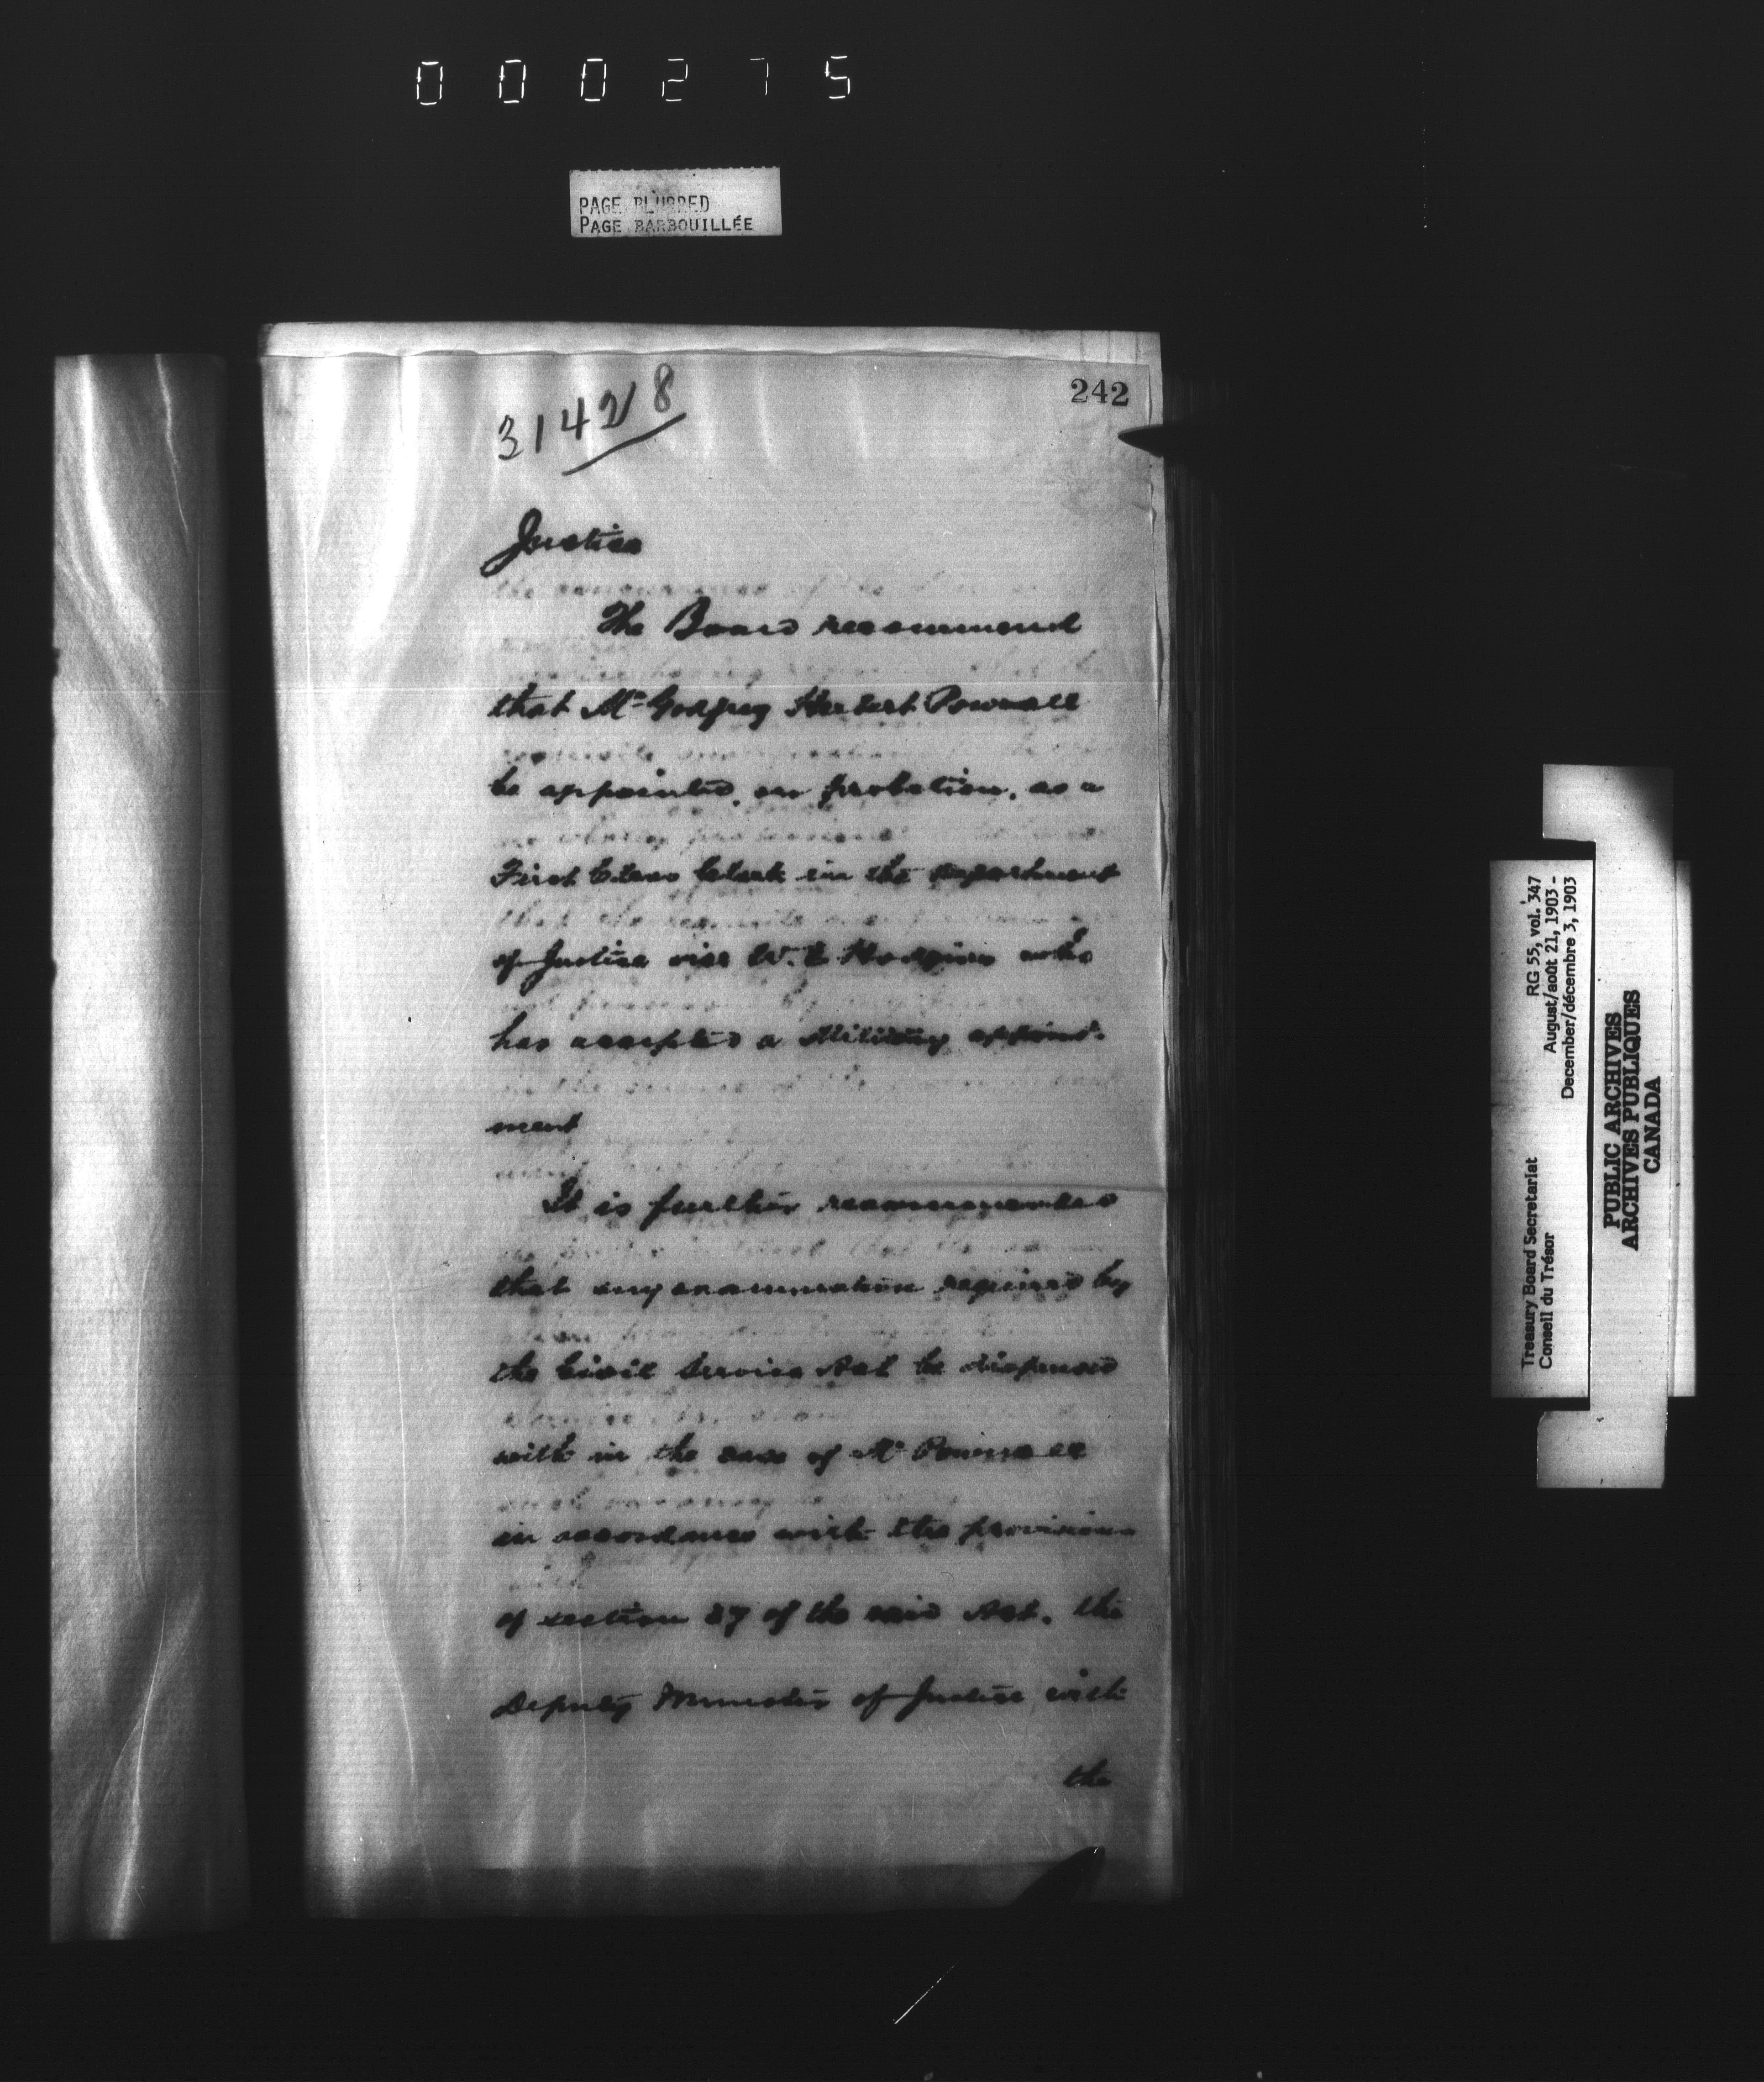 000275
PAGE BLURRED
PAGE BARBOUILLÉE
242
31428
Justice
The Board recommend
that Mr Godfrey Herbert Pownall
be appointed, on probation, as a
First Class Clerk in the Department
of Justice vice W. E. Hodgins who
has accepted a Military appoint-
ment
It is further recommended
that any examination required by
the Civil Service Act be dispensed
with in the case of Mr Pownall
in accordance with the provisions
of section 37 of the said Act, the
Deputy Minister of Justice with
the
Treasury Board Secretariat RG 55, vol. 347
Conseil du Trésor August/août 21, 1903 -
December/décembre 3, 1903
PUBLIC ARCHIVES
ARCHIVES PUBLIQUES
CANADA